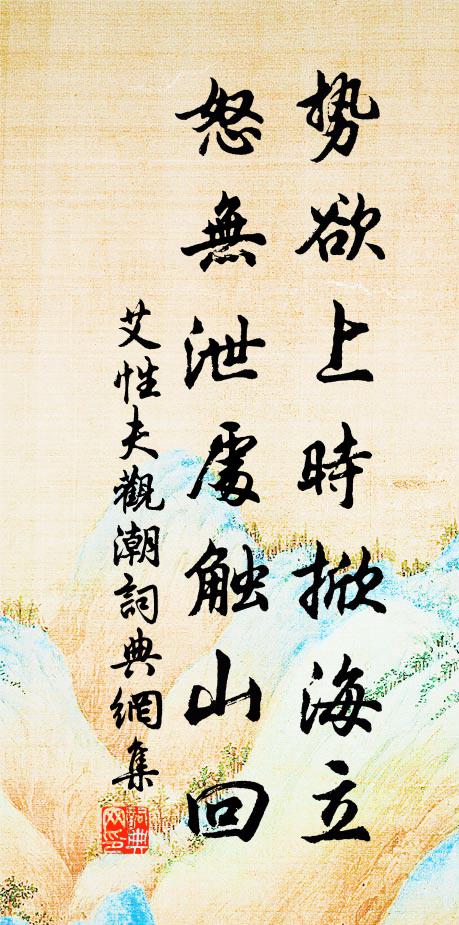 势欲上時掀海立
怒無泄處触山回
艾性夫觀潮詞典網集
詞典網印